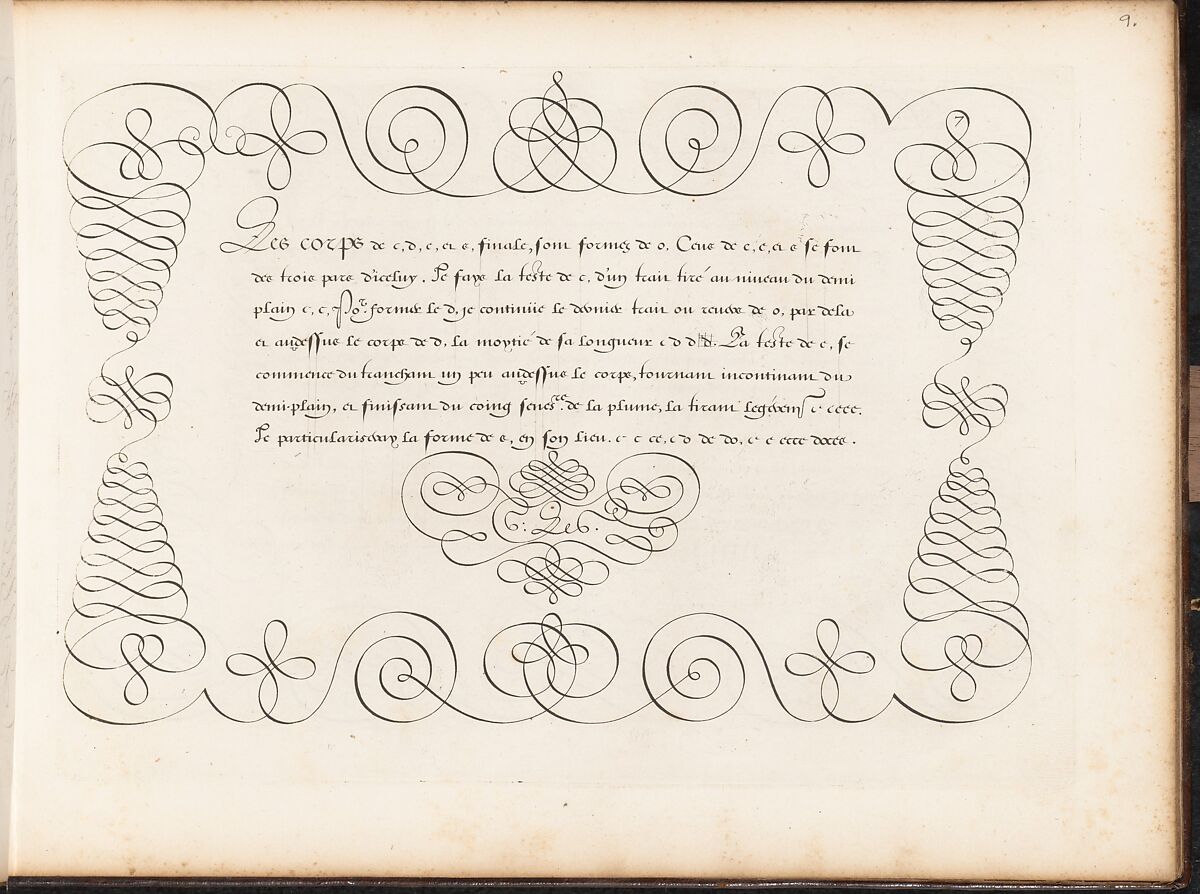 9.
7
Les corps de c, d, e, et s, finale, sont formez de o. Ceus de c, e, et s se font
des trois pars d'iceluy. Je fays la teste de c, d'un trait tiré au niveau du demi
plain c, c, Por former le d, je continüe le dernier trait ou revers de o, par dela
et audessus le corps de d, la moytié de sa longueur c d d. La teste de e, se
commence du tranchant un peu audessus le corps, tournant incontinant du
demi-plain, et finissant du coing senestre de la plume, la tirant legérement c ceee.
Je particulariseray la forme de s, en son lieu. c c ce, c d de do, c e ecce
G: Les.